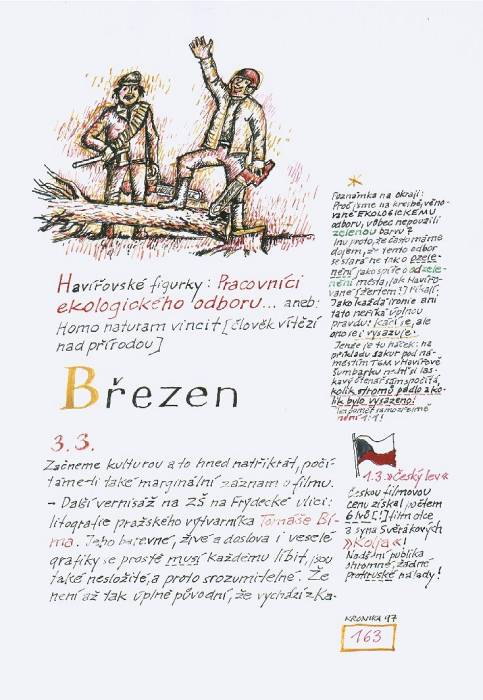 Havířovské figurky: Pracovníci
ekologického odboru... aneb:
Homo naturam vincit [člověk vítězí
nad přírodou]
Březen
3.3.
Začneme kulturou a to hned natřikrát, počí-
táme-li také marginální záznam o filmu.
– Další vernisáž na ZŠ na Frýdecké ulici:
litografie pražského výtvarníka Tomáše Bí-
ma. Jeho barevné, živé a doslova i veselé
grafiky se prostě musí každému líbit, jsou
také nesložité, a proto srozumitelné. Že
není až tak úplně původní, že vychází z Ka-
Poznámka na okraji:
Proč jsme na kresbě, věno-
vané EKOLOGICKÉMU
odboru, vůbec nepoužili
zelenou barvu?
Inu proto, že často máme
dojem, že tento odbor
se stará ne tak o ozele-
nění jako spíše o odzele-
nění města, jak Havířo-
vané [žertem!] říkají.
Jako každá ironie ani
tato neříká úplnou
pravdu: kácí se, ale
ono se i vysazuje.
Jenže je tu háček: na
příkladu sakur pod ná-
městím TGM v Havířově
Šumbarku nechť si las-
kavý čtenář sám spočítá,
kolik stromů padlo a ko-
lik bylo vysazeno!
není 1:1!
1.3. »Český lev«
Českou filmovou
cenu získal počtem
6 lvů [!] film otce
a syna Svěrákových
»Kolja«!
Nadšení publika
ohromné, žádné
protiruské nálady!
KRONIKA 97
163